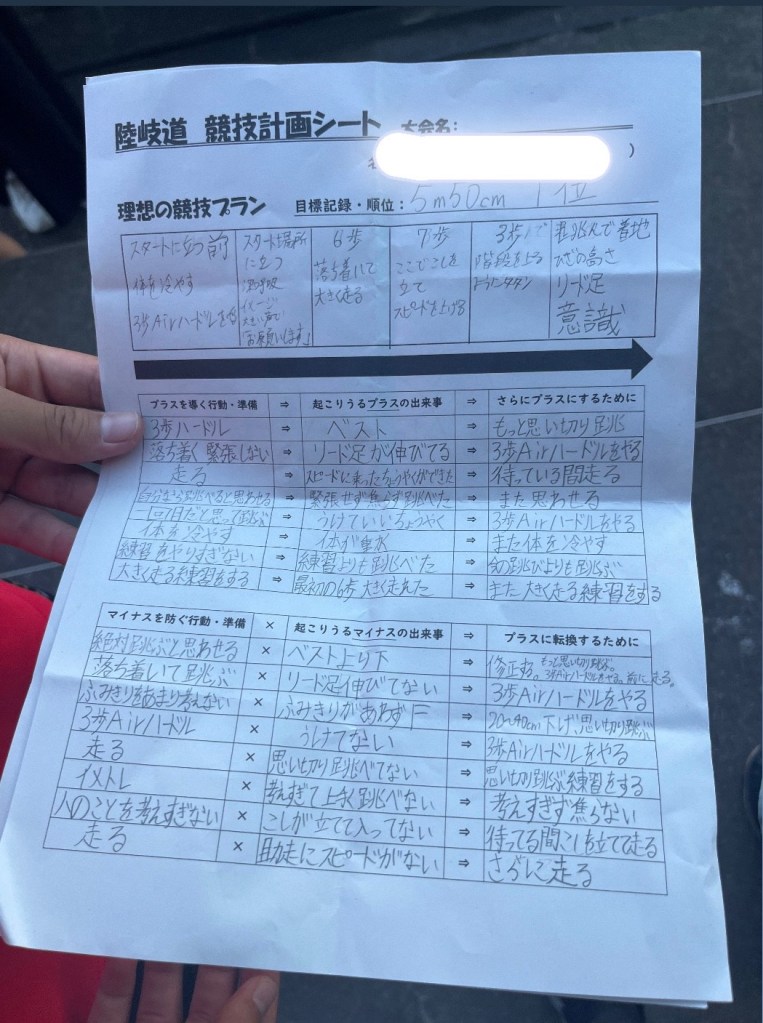 陸岐道 競技計画シート 大会名:
)
理想の競技プラン 目標記録・順位: 5m50cm 1位
スタートに立つ前 スタート場所 6歩 7歩 3歩 踏んで着地
に立つ 落ち着いて ここでこしを 階段を上る ひざの高さ
体を冷やす 大きく走る 立て ようにタタン リード足
イメージ スピードを上げる 意識
3歩Airハードルをやる 大きい声で
「お願いします」
プラスを導く行動・準備 ⇒ 起こりうるプラスの出来事 ⇒ さらにプラスにするために
3歩ハードル ⇒ ベスト ⇒ もっと思い切り跳ぶ
落ち着く 緊張しない ⇒ リード足が伸びてる ⇒ 3歩Airハードルをやる
走る ⇒ スピードに乗ったちょうやくができた ⇒ 待っている間走る
自分なら跳べると思わせる ⇒ 緊張せず焦らず跳べた ⇒ また思わせる
一回目だと思って跳ぶ ⇒ うけていいちょうやく ⇒ 3歩Airハードルをやる
体を冷やす ⇒ 体が重くない ⇒ また体を冷やす
練習をやりすぎない ⇒ 練習よりも跳べた ⇒ 跳びよりも跳ぶ
大きく走る練習をする ⇒ 最初の6歩大きく走れた ⇒ また大きく走る練習をする
マイナスを防ぐ行動・準備 × 起こりうるマイナスの出来事 ⇒ プラスに転換するために
絶対跳ぶと思わせる × ベストより下 ⇒ 修正する。もっと思い切り跳ぶ。3歩Airハードルをやる。前に走る。
落ち着いて跳ぶ × リード足伸びてない ⇒ 3歩Airハードルをやる
ふみきりをあまり考えない × ふみきりがあわずF ⇒ 20〜40cm下げ、思い切り跳ぶ
3歩Airハードル × うけてない ⇒ 3歩Airハードルをやる
走る × 思い切り跳べてない ⇒ 思い切り跳ぶ練習をする
イメトレ × 考えすぎて上手く跳べない ⇒ 考えすぎず焦らない
人のことを考えすぎない × こしが立てて入ってない ⇒ 待ってる間こしを立てて走る
走る × 助走にスピードがない ⇒ さらに走る